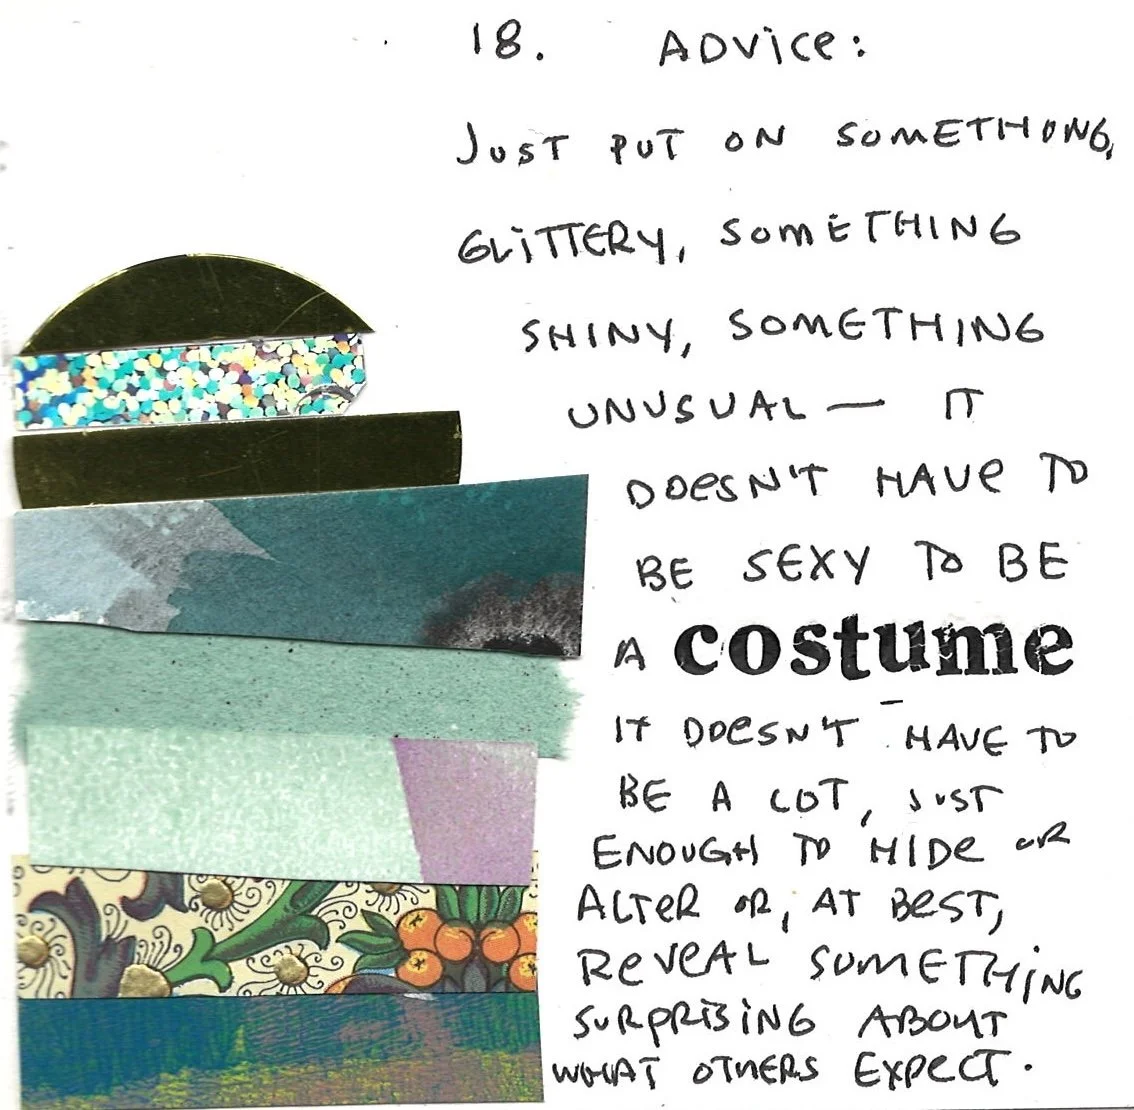 18. ADVICE:
JUST PUT ON SOMETHING,
GLITTERY, SOMETHING
SHINY, SOMETHING
UNUSUAL — IT
DOESN'T HAVE TO
BE SEXY TO BE
A costume
IT DOESN'T HAVE TO
BE A LOT, JUST
ENOUGH TO HIDE OR
ALTER OR, AT BEST,
REVEAL SOMETHING
SURPRISING ABOUT
WHAT OTHERS EXPECT.